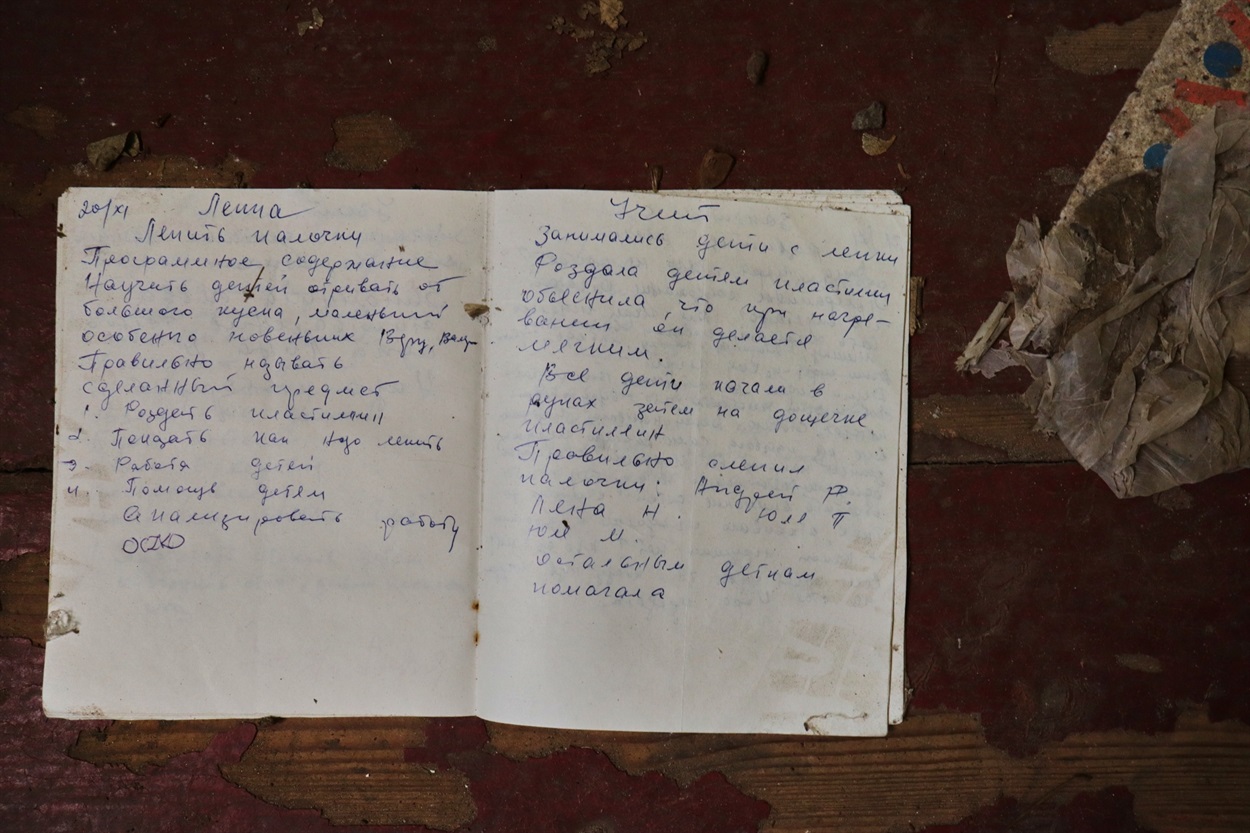 20/XI Лепка
Лепить палочки
Программное содержание
Научить детей отривать от
большого куска, маленький
особенно новеньких Веру,
Правильно нзывать
сделанный предмет
1. Роздать пластилин
2. Покзать как ндо лепить
3. Работа детей
4. Помощь детям
Анализировать работу
Учит
Занимались дети с лепки
Роздала детям пластилин
обьеснила, что при нагре-
вании он делается
мягким.
Все дети качали в
руках зетем на дощечке.
пластилин
Правильно слепил
палочки: Андрей Р.
Лена Н. Юля П
Юля М.
остальным деткам
помагала